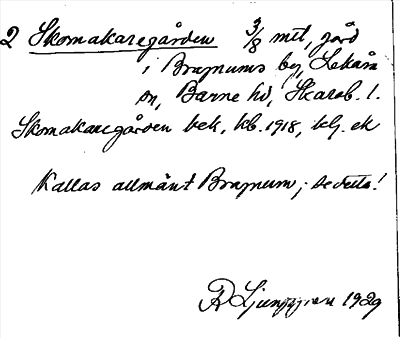 2 Skomakaregården 3/8 mtl, gård
i Brajnums by, Lekåsa
sn, Barne hd, Skarab. l.
Skomakaregården bek, kb. 1918, ek
Kallas allmänt Brajnum; se detta!
R Ljunggren 1929